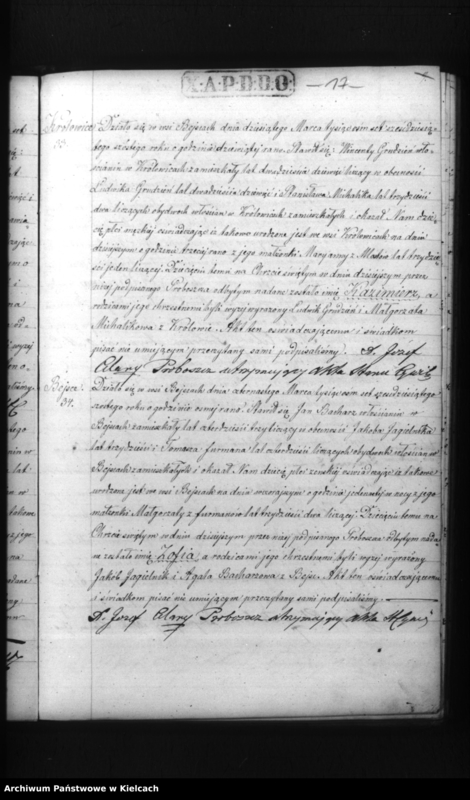 X.A.P.D.D.O
— 17 —
Królowice
Działo się we wsi Bejscach dnia dziesiątego Marca tysiąc ośmset sześćdziesią-
tego szóstego roku o godzinie dziewiątej rano. Stawił się Wincenty Grudzień wło-
ścianin w Królowicach zamieszkały lat dwadzieścia dziewięć liczący w obecności
Ludwika Grudzień lat dwadzieścia dziewięć i Stanisława Michalika lat trzydzieści
dwa liczących obydwóch włościan w Królowicach zamieszkałych i okazał Nam dzie-
cię płci męzkiej oświadczając iż takowe urodzone jest we wsi Królowicach na dniu
dzisiejszym o godzinie trzeciej rano z jego małżonki Maryanny z lat trzydzie-
ści jeden liczącej. Dziecięciu temu na Chrzcie świętym w dniu dzisiejszym przez
niżej podpisanego Proboszcza odbytym nadane zostało imię Kazimierz, a
rodzicami jego chrzestnemi byli wyżej wyrażony Ludwik Grudzień i Małgorzata
Michalikowa z Królowic. Akt ten oświadczającemu i świadkom
pisać nie umiejącym przeczytany sami podpisaliśmy. X. Józef
Proboszcz utrzymujący Akta Stanu Cywil.
Bejsce
34.
Działo się we wsi Bejscach dnia jedenastego Marca tysiąc ośmset sześćdziesiątego
szóstego roku o godzinie ósmej rano. Stawił się Jan włościanin w
Bejscach zamieszkały lat czterdzieści trzy liczący w obecności Jakóba Jagielnika
lat trzydzieści i Tomasza Furmana lat czterdzieści liczących obydwóch włościan w
Bejscach zamieszkałych i okazał Nam dziecię płci żeńskiej oświadczając iż takowe
urodzone jest we wsi Bejscach na dniu wczorajszym o godzinie jedenastej w nocy z jego
małżonki Małgorzaty z Furmanów lat trzydzieści dwa liczącej. Dziecięciu temu na
Chrzcie świętym w dniu dzisiejszym przez niżej podpisanego Proboszcza odbytym nada-
ne zostało imię Zofia a rodzicami jego chrzestnemi byli wyżej wyrażony
Jakób Jagielnik i Agata z Bejsc. Akt ten oświadczającemu
i świadkom pisać nie umiejącym przeczytany sami podpisaliśmy.
X. Józef Proboszcz utrzymujący Akta
Archiwum Państwowe w Kielcach